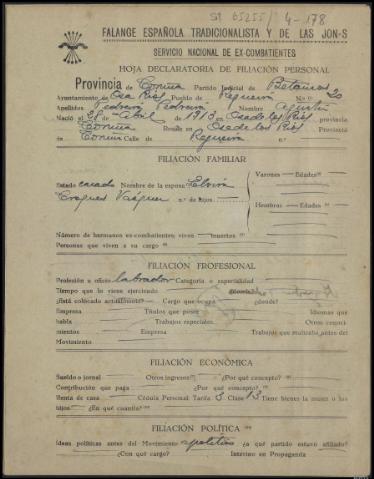 SM 65255 / 4-178
FALANGE ESPAÑOLA TRADICIONALISTA Y DE LAS JON-S
SERVICIO NACIONAL DE EX-COMBATIENTES
HOJA DECLARATORIA DE FILIACIÓN PERSONAL
Provincia de Coruña Partido Judicial de Betanzos
Ayuntamiento de Oza Rios Pueblo de Regueira No 20
Apellidos Pedreira Pedreira Nombre Agustin
Nació el 28 de Abril de 1913 en Oza de los Rios provincia
Coruña Reside en Oza de los Rios Provincia
de Coruña Calle de Regueira n.º
FILIACIÓN FAMILIAR
Varones — Edades
Estado casado Nombre de la esposa Elvira
Vázquez n.º de hijos
Hembras — Edades
Número de hermanos ex-combatientes; viven muertos
Personas que viven a su cargo
FILIACIÓN PROFESIONAL
Profesión u oficio labrador Categoría o especialidad
Tiempo que lo viene ejerciendo
¿Está colocado actualmente? Cargo que ocupa ¿donde?
Empresa Títulos que posee Idiomas que
habla Trabajos especiales Otros conoci-
mientos Empresa Trabajos que realizaba antes del
Movimiento
FILIACIÓN ECONÓMICA
Sueldo o jornal Otros ingresos? ¿Por qué concepto?
Contribución que paga ¿Por qué concepto?
Renta de casa Cédula Personal Tarifa 3 Clase 13 Tiene bienes la mujer o los
hijos ¿En qué cuantía?
FILIACIÓN POLÍTICA
Ideas políticas antes del Movimiento apolitico ¿a qué partido estuvo afiliado?
¿Con qué cargo? Intervino en Propaganda